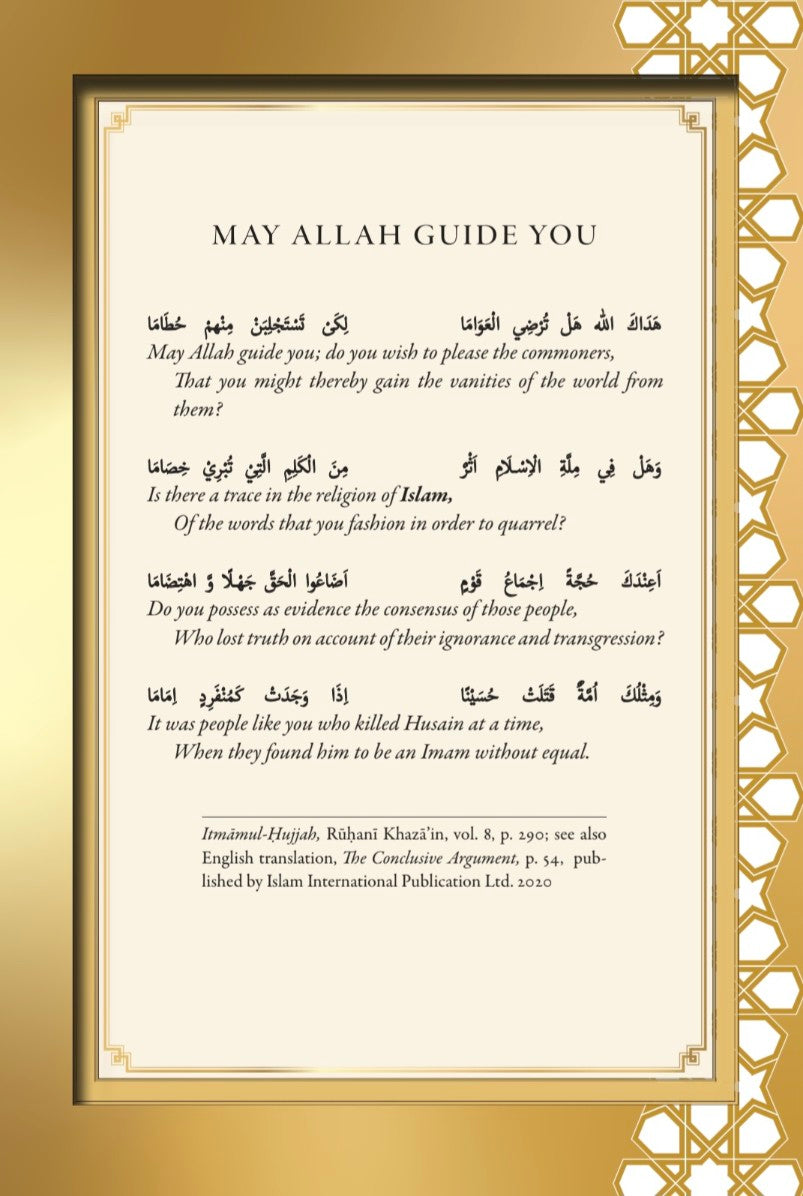 MAY ALLAH GUIDE YOU
هَدَاكَ اللّٰه هَلْ تُرْضِي الْعَوَامَا لِكَيْ تَسْتَجْلِبَنْ مِنْهمْ حُطَامَا
May Allah guide you; do you wish to please the commoners,
That you might thereby gain the vanities of the world from
them?
وَهَلْ فِي مِلَّةِ الْاِسْلَامِ اَثَرٌ مِنَ الْكَلِمِ الَّتِيْ تُبْرِيْ خِصَامَا
Is there a trace in the religion of Islam,
Of the words that you fashion in order to quarrel?
اَعِنْدَكَ حُجَّةً اِجْمَاعُ قَوْمٍ اَضَاعُوا الْحَقَّ جَهْلًا وَّ اهْتِضَامَا
Do you possess as evidence the consensus of those people,
Who lost truth on account of their ignorance and transgression?
وَمِثْلُكَ اُمَّةٌ قَتَلَتْ حُسَيْنًا اِذَا وَجَدَتْ كَمُنْفَرِدٍ اِمَامَا
It was people like you who killed Husain at a time,
When they found him to be an Imam without equal.
Itmāmul-Ḥujjah, Rūḥanī Khazā’in, vol. 8, p. 290; see also
English translation, The Conclusive Argument, p. 54, pub-
lished by Islam International Publication Ltd. 2020